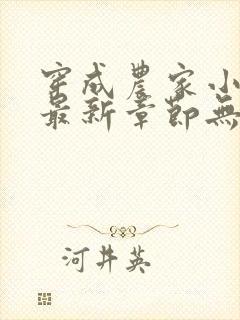 穿成農家小
最新章節無
河井英